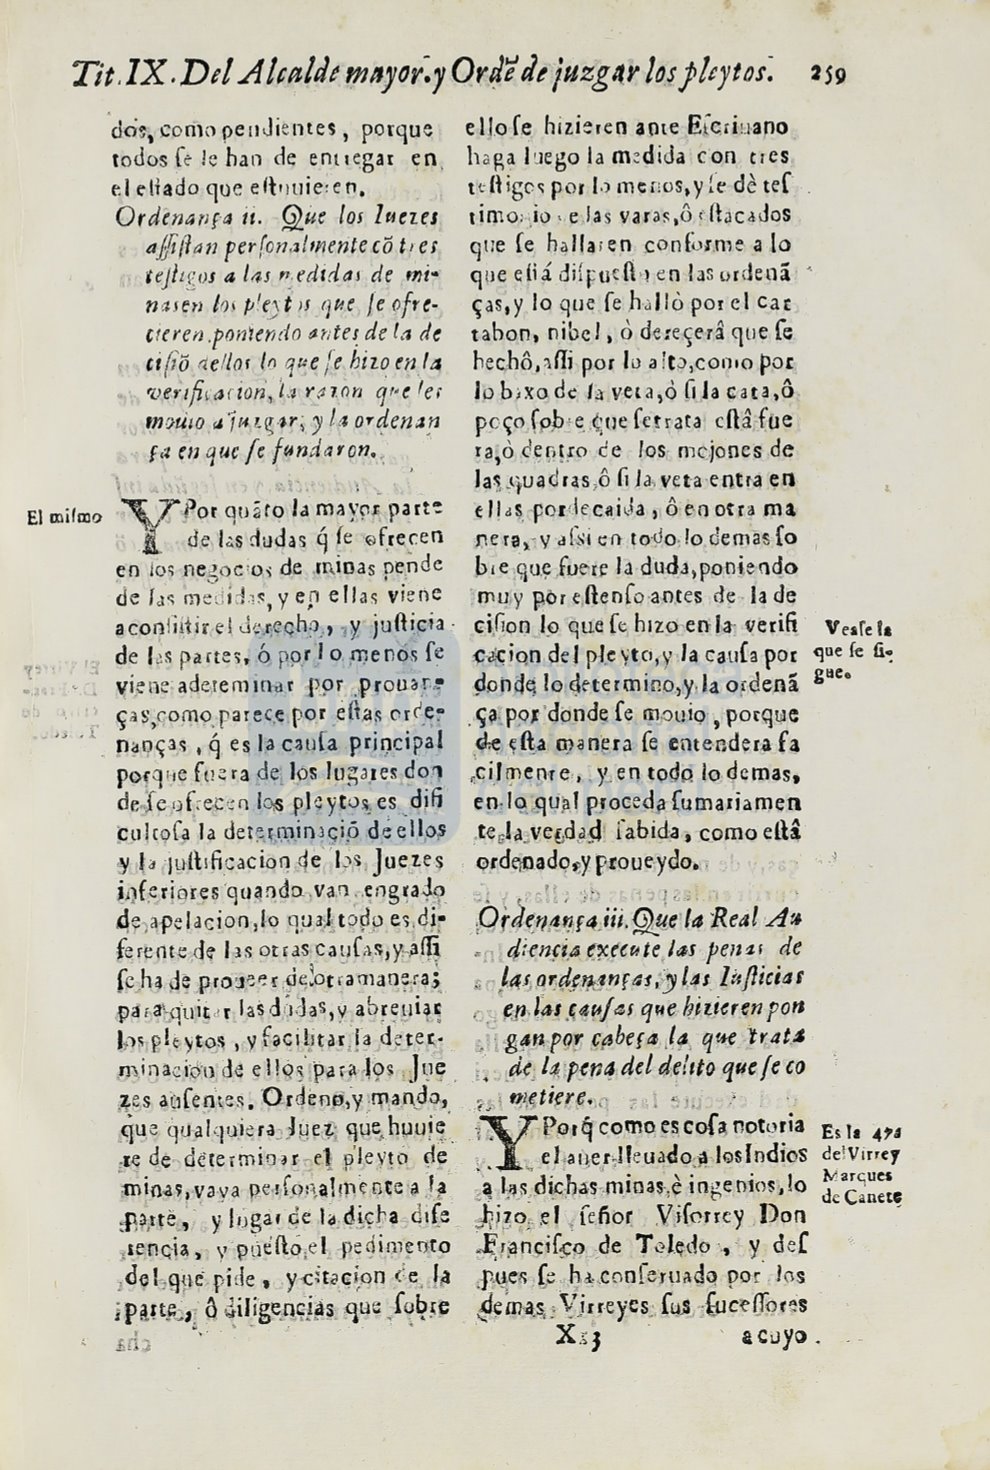 Tit. IX. Del Alcalde mayor. y Ordẽ de juzgar los pleytos. 259
dos, como pendientes, porque
todos se le han de entregar en
el estado que estuuieren.
Ordenança ii. Que los Iuezes
assistan personalmente cõ tres
testigos a las medidas de mi-
nas en los pleytos que se ofre-
cieren, poniendo antes de la de
cisiõ dellos lo que se hizo en la
verificacion, la razon que les
mouio a juzgar, y la ordenan
ça en que se fundaron.
El mismo
Y Por quãto la mayor parte
de las dudas q̃ se ofrecen
en los negocios de minas pende
de las medidas, y en ellas viene
a consistir el derecho, y justicia
de las partes, ó por lo menos se
viene a dereminar por prouan-
ças, como parece por estas orde-
nanças, q̃ es la causa principal
porque fuera de los lugares don
de se ofrecen los pleytos es difi
cultosa la determinaciõ de ellos
y la justificacion de los Juezes
inferiores quando van en grado
de apelacion, lo qual todo es di-
ferente de las otras causas, y assi
se ha de proueer de otra manera;
para quitar las dudas, y abreuiar
los pleytos, y facilitar la deter-
minacion de ellos para los Jue
zes ausentes. Ordeno, y mando,
que qualquiera Juez que huuie
re de determinar el pleyto de
minas, vaya personalmente a la
parte, y lugar de la dicha dife
rencia, y puesto el pedimento
del que pide, y citacion de la
parte, ô diligencias que sobre
ello se hizieren ante Escriuano
haga luego la medida con tres
testigos por lo menos, y se dè tes
timonio de las varas, ô estacados
que se hallaren conforme a lo
que está dispuesto en las ordenã
ças, y lo que se hallò por el car
tabon, nibel, ò dereçerâ que se
hechô, assi por lo alto, como por
lo baxo de la veta, ó si la cata, ô
poço sobre que se trata estâ fue
ra, ò dentro de los mojones de
las quadras, ô si la veta entra en
ellas por decaida, ô en otra ma
nera, y assi en todo lo demas so
bre que fuere la duda, poniendo
muy por estenso antes de la de
cision lo que se hizo en la verifi
cacion del pleyto, y la causa por
donde lo determino, y la ordenã
ça por donde se mouio, porque
de esta manera se entendera fa
cilmente, y en todo lo demas,
en lo qual proceda sumariamen
te la verdad sabida, como estâ
ordenado, y proueydo.
Vease la
que se si-
gue.
Ordenança iii. Que la Real Au
diencia execute las penas de
las ordenanças, y las Iusticias
en las causas que hizieren pon
gan por cabeça la que trata
de la pena del delito que se co
metiere.
Y Porq̃ como es cosa notoria
el auer lleuado a los Indios
a las dichas minas, è ingenios, lo
hizo el señor Visorrey Don
Francisco de Toledo, y des
pues se ha conseruado por los
demas Virreyes sus sucessores
Es la 47a
del Virrey
Marques
de Canete
Xx3 a cuyo